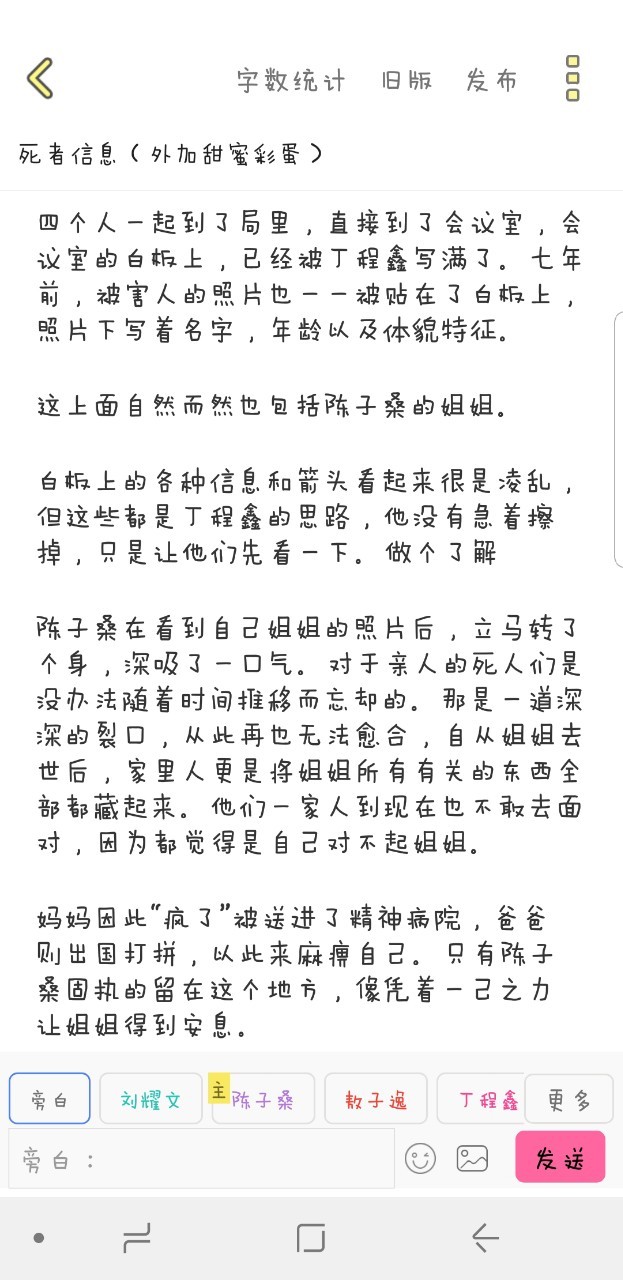 字数统计 旧版 发布
死者信息（外加甜蜜彩蛋）
四个人一起到了局里，直接到了会议室，会
议室的白板上，已经被丁程鑫写满了。七年
前，被害人的照片也一一被贴在了白板上，
照片下写着名字，年龄以及体貌特征。
这上面自然而然也包括陈子桑的姐姐。
白板上的各种信息和箭头看起来很是凌乱，
但这些都是丁程鑫的思路，他没有急着擦
掉，只是让他们先看一下。做个了解
陈子桑在看到自己姐姐的照片后，立马转了
个身，深吸了一口气。对于亲人的死人们是
没办法随着时间推移而忘却的。那是一道深
深的裂口，从此再也无法愈合，自从姐姐去
世后，家里人更是将姐姐所有有关的东西全
部都藏起来。他们一家人到现在也不敢去面
对，因为都觉得是自己对不起姐姐。
妈妈因此“疯了”被送进了精神病院，爸爸
则出国打拼，以此来麻痹自己。只有陈子
桑固执的留在这个地方，像凭着一己之力
让姐姐得到安息。
旁白 刘耀文 主 陈子桑 敖子逸 丁程鑫 更多
旁白： 发送